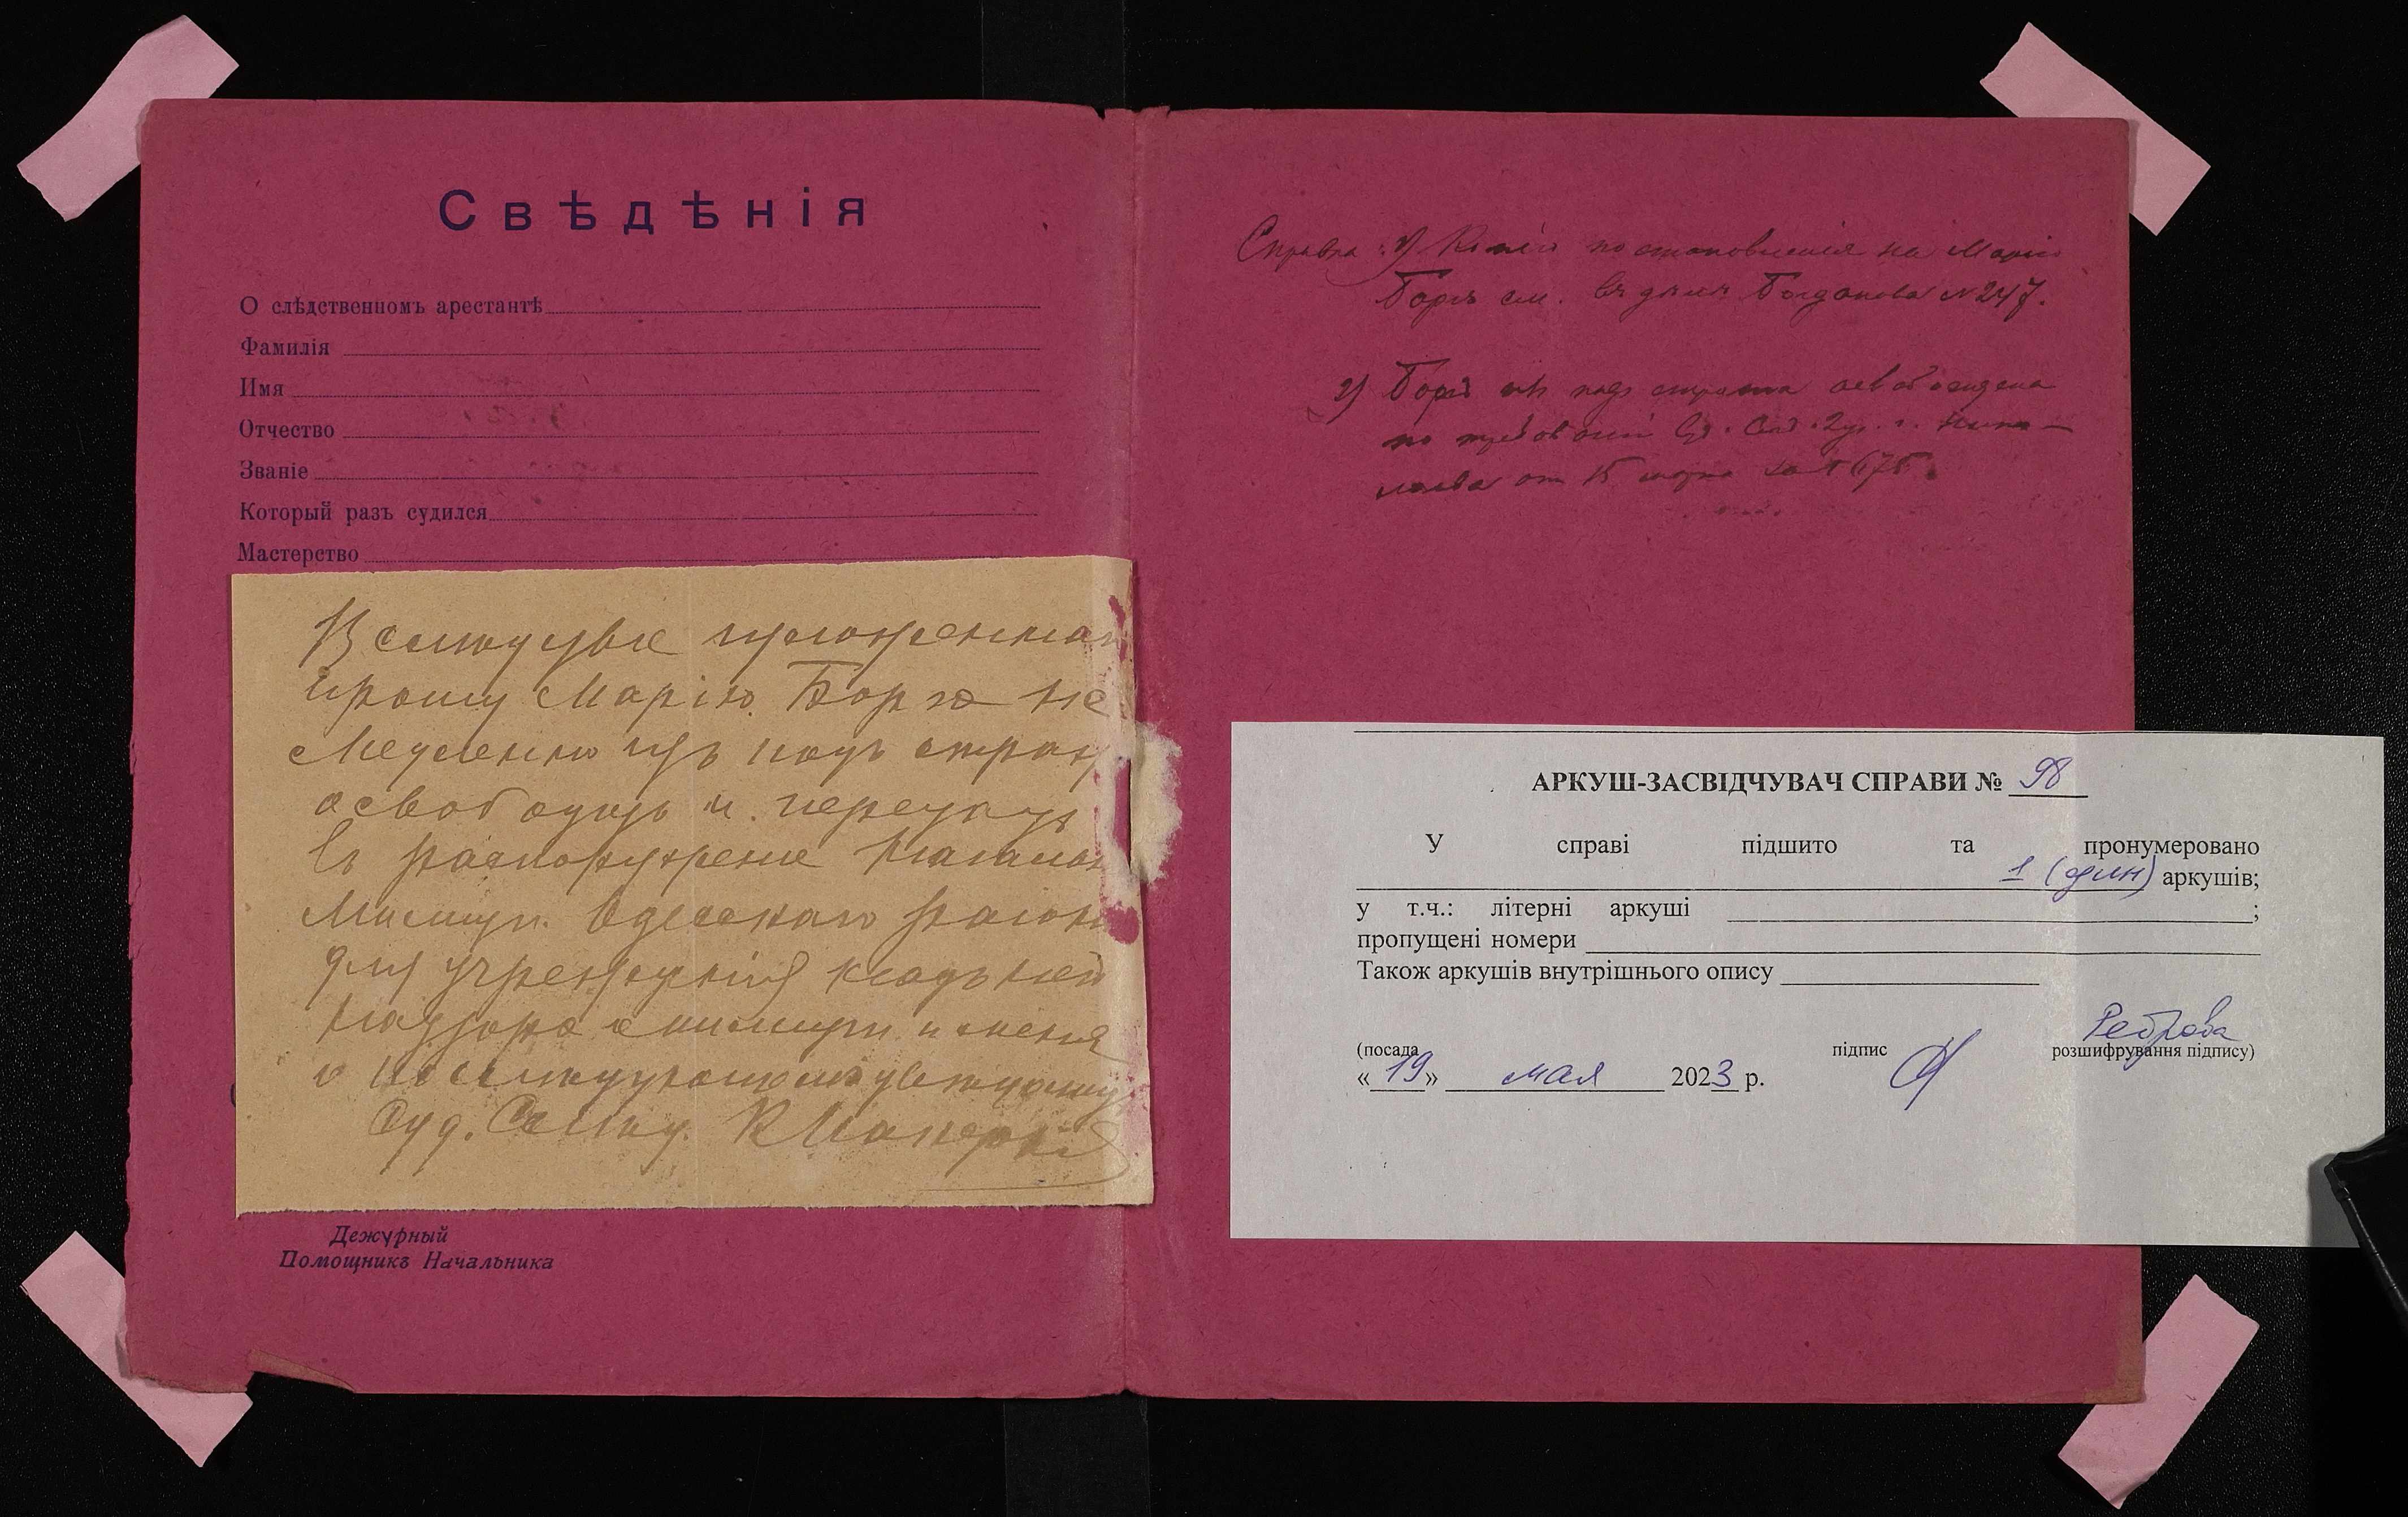 Свѣдѣнія
О слѣдственномъ арестантѣ
Фамилія
Имя
Отчество
Званіе
Который разъ судился
Мастерство
Вслѣдствіе прошенія
прошу Марію Боргъ не
медленно изъ подъ страж
освободить и передать
въ распоряженіе Начальн
Милиціи Одесскаго района
для учрежденія надъ ней
надзора милиціи и меня
о послѣдующемъ увѣдомить
Суд. Слѣд.
Дежурный
Помощникъ Начальника
Справка: 1) Копію постановленія на Марію
Боргъ см. въ дѣлѣ Богданова №247.
2) Боргъ изъ подъ стражи освобождена
по требованію Суд. Слѣд. 2 уч. г. Нико-
лаева от 15 марта за № 675.
АРКУШ-ЗАСВІДЧУВАЧ СПРАВИ № 98
У справі підшито та пронумеровано
1 (один) аркушів;
у т.ч.: літерні аркуші ;
пропущені номери
Також аркушів внутрішнього опису
Реброва
(посада підпис розшифрування підпису)
« 19 » мая 2023 р.